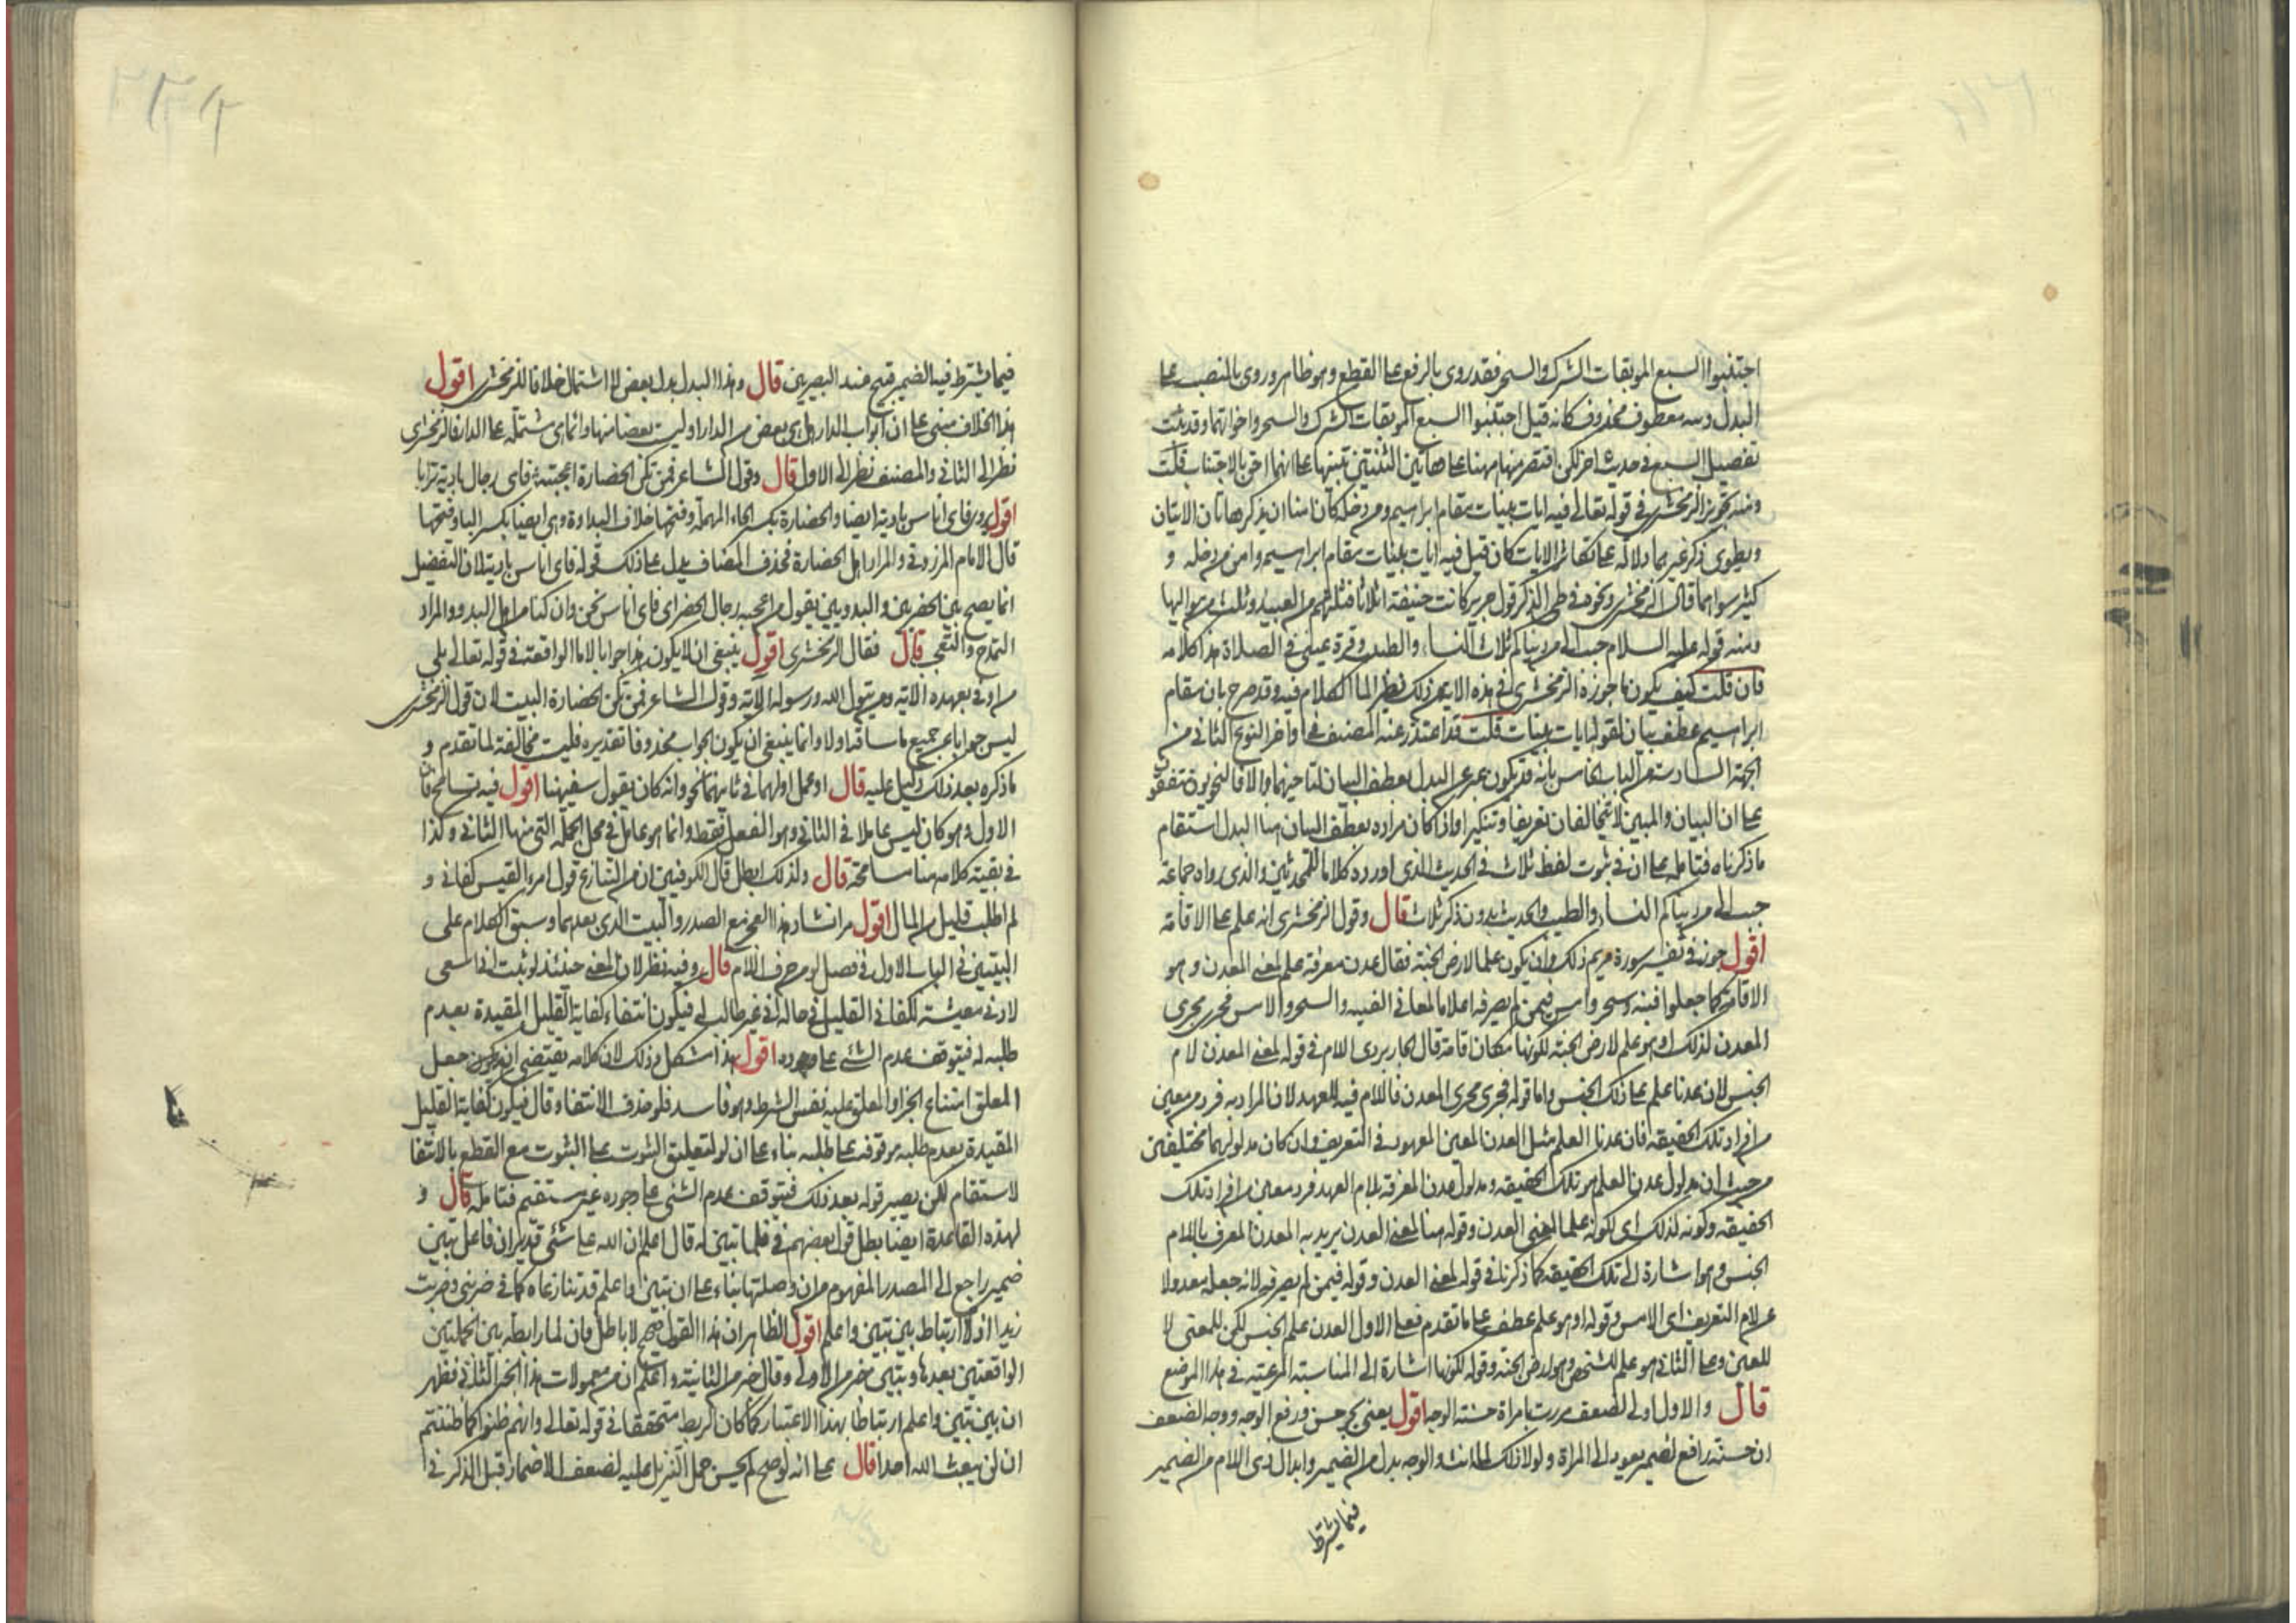 اجتنبوا السبع الموبقات الشرك والسحر فقد روى بالرفع على القطع وهو ظاهر وروى بالنصب على
البدل ومنه معطوف محذوف كانه قيل اجتنبوا السبع الموبقات الشرك والسحر واخواتهما وقد ثبت
تفصيل السبع فى حديث اخر لكن اقتصر منها ههنا على هاتين الثنتين تنبيها على انهما احق بالاجتناب قلت
ومنه تجويز الزمخشرى فى قوله تعالى فيه ايات بينات مقام ابراهيم ومن دخله كان امنا ان يذكر هاتان الايتان
ويطوى ذكر غيرهما دلالة على تكاثر الايات كان قيل فيه ايات بينات مقام ابراهيم وامن من دخله و
كثير سواهما قال الزمخشرى ونحوه فى طى الذكر قول جرير كانت حنيفة اثلاثا فثلثهم من العبيد وثلث من مواليها
ومنه قوله عليه السلام حبب الى من دنياكم ثلاث النساء والطيب وقرة عينى فى الصلاة هذا كلامه
فان قلت كيف يكون ما جوزه الزمخشرى فى هذه الاية من ذلك نظير الما الكلام فيه وقد صرح بان مقام
ابراهيم عطف بيان لقوله ايات بينات قلت قد اعتذر عنه المصنف فى اواخر النوع الثانى من
الجهة السادسة من الباب الخامس بانه قد يكون عبر عن البدل بعطف البيان لتاخيهما والا فالنحويون متفقون
على ان البيان والمبين لا يتخالفان تعريفا وتنكيرا واذا كان مراده بعطف البيان هنا البدل استقام
ما ذكرناه فتامله على ان فى ثبوت لفظ ثلاث فى الحديث الذى اورده كلاما للمحدثين والذى رواه جماعة
حبب الى من دنياكم النساء والطيب والحديث بدون ذكر ثلاث قال وقول الزمخشرى انه علم على الاقامة
اقول جوز فى تفسير سورة مريم ذلك وان يكون علما لارض الجنة فقال عدن معرفة علم لمعنى العدن وهو
الاقامة كما جعلوا فينة وسحر وامس فيمن لم يصرفه اعلاما لمعانى الفينة والسحر والامس فجرى مجرى
العدن لذلك او هو علم لارض الجنة لكونها مكان اقامة قال الجاربردى اللام فى قوله لمعنى العدن لام
الجنس لان عدنا علم على ذلك الجنس واما قوله فجرى مجرى العدن فاللام فيه للعهد لان المراد به فرد معين
من افراد تلك الحقيقة فان عدنا العلم مثل العدن المعين المعهود فى التعريف وان كان مدلولهما مختلفين
من حيث ان مدلول عدن العلم هو تلك الحقيقة ومدلول عدن المعرفة بلام العهد فرد معين من افراد تلك
الحقيقة وكونه لذلك اى لكونه علما لمعنى العدن وقوله هنا لمعنى العدن يريد به العدن المعرف بالام
الجنس وهو اشارة الى تلك الحقيقة كما ذكرنا فى قوله لمعنى العدن وقوله فيمن لم يصرفه لانه جعله معدولا
عن لام التعريف اى الامس وقوله او هو علم عطف على ما تقدم فعلى الاول العدن علم الجنس لكن للمعنى لا
للعين وعلى الثانى هو علم لشخص وهو ارض الجنة وقوله لكونها اشارة الى المناسبة المرعية فى هذا الموضع
قال والاول اولى لضعف مررت بامراة حسنة الوجه اقول يعنى بجر حسن ورفع الوجه ووجه الضعف
ان حسنة رافع لضمير يعود الى المراة ولولا ذلك لما انث والوجه بدل من الضمير وابدال ذى اللام من الضمير
فيما يشترط
فيما يشترط فيه الضمير قبيح عند البصريين قال وهذا البدل بدل بعض لا اشتمال خلافا للزمخشرى اقول
هذا الخلاف مبنى على ان ابواب الدار هل هى بعض من الدار او ليست بعضا منها وانما هى مشتملة على الدار فالزمخشرى
نظر الى الثانى والمصنف نظر الى الاول قال وقول الشاعر فمن تكن الحضارة اعجبته فاى رجال بادية ترانا
اقول يروى فاى اناس بادية ايضا والحضارة بكسر الحاء المهملة وفتحها خلاف البداوة وهى ايضا بكسر الباء وفتحها
قال الامام المرزوقى والمراد اهل الحضارة فحذف المضاف يدل على ذلك قوله فاى اناس بادية لان التفضيل
انما يصح بين الحضريين والبدويين يقول من اعجبه رجال الحضر اى فاى اناس نحن وان كنا من اهل البدو والمراد
التمدح والتعجب قال فقال الزمخشرى اقول ينبغى ان لا يكون هذا جوابا لاما الواقعة فى قوله تعالى بلى
من اوفى بعهده الاية ومن يتول الله ورسوله الاية وقول الشاعر فمن تكن الحضارة البيت لان قول الزمخشرى
ليس جوابا عن جميع ما ساقه اولا وانما ينبغى ان يكون الجواب محذوفا تقديره فليست مخالفة لما تقدم و
ما ذكره بعد ذلك دليل عليه قال او عمل اولهما فى ثانيهما نحو وانه كان يقول سفيهنا اقول فيه تسامح فان
الاول وهو كان ليس عاملا فى الثانى وهو الفعل فقط وانما هو عامل فى محل الجملة التى منها الثانى وكذا
فى بقية كلامه هنا مسامحة قال ولذلك ابطل قال الكوفيين ان من التنازع قول امرؤ القيس كفانى و
لم اطلب قليل من المال اقول مر انشاد هذا العجز مع الصدر والبيت الذى بعدهما وسبق الكلام على
البيتين فى الباب الاول فى فصل لو من حرف اللام قال وفيه نظر لان المعنى حينئذ لو ثبت انى اسعى
لادنى معيشة لكفانى القليل فى حالة انى غير طالب له فيكون انتفاء كفاية القليل المقيدة بعدم
طلبه له فيتوقف عدم الشئ على وجوده اقول هذا مشكل وذلك لان كلامه يقتضى ان يكون جعل
المعلق امتناع الجزاء والمعلق عليه نفس الشرط وهو فاسد فلو حذف الانتفاء وقال فيكون كفاية القليل
المقيدة بعدم طلبه موقوفة على طلبه بناء على ان لو لتعليق الثبوت على الثبوت مع القطع بالانتفا
لاستقام لكن يصير قوله بعد ذلك فيتوقف عدم الشئ على وجوده غير مستقيم فتامله قال و
لهذه القاعدة ايضا بطل قول بعضهم فى فلما تبين له قال اعلم ان الله على شئ قدير ان فاعل تبين
ضمير راجع الى المصدر المفهوم من ان وصلتها بناء على ان تبين واعلم قد تنازعاه كما فى ضربنى وضربت
زيدا اذ لا ارتباط بين تبين واعلم اقول الظاهر ان هذا القول صحيح لا باطل فان لما رابطة بين الجملتين
الواقعتين بعدها وتبين جزء من الاولى وقال جزء من الثانية واعلم ان من معمولات هذا الجزء الثانى فظهر
ان بين تبين واعلم ارتباطا بهذا الاعتبار كما كان الربط متحققا فى قوله تعالى وانهم ظنوا كما ظننتم
ان لن يبعث الله احدا قال على انه لو صح لم يحسن حمل التنزيل عليه لضعف الاضمار قبل الذكر فى